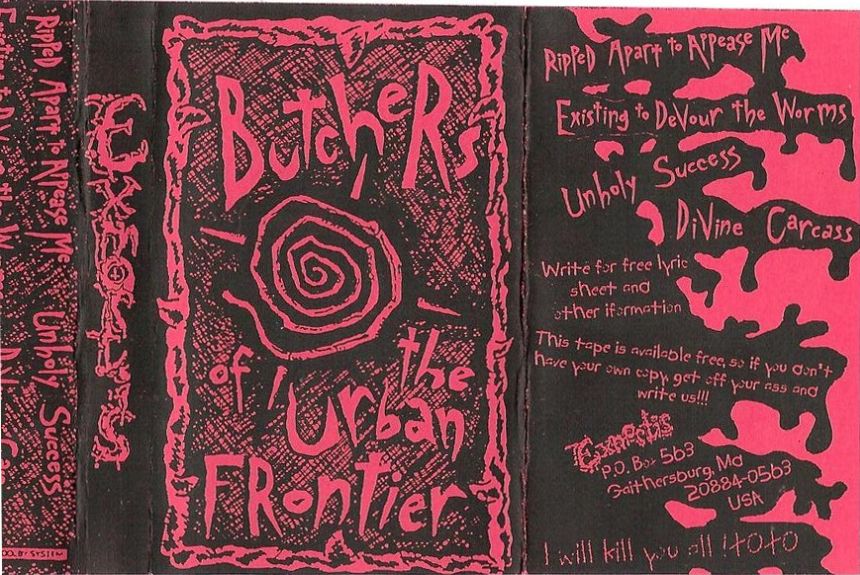 Ripped Apart to Appease Me Unholy Success
ButcheRs
of the
Urban
FRontier
Ripped Apart to Appease Me
Existing to DeVour the Worms
Unholy Success
DiVine Carcass
Write for free lyric
sheet and
other iformation
This tape is available free, so if you don't
have your own copy, get off your ass and
write us!!!
P.O. Box 563
Gaithersburg, Md
20884-0563
USA
I will kill you all !XOXO